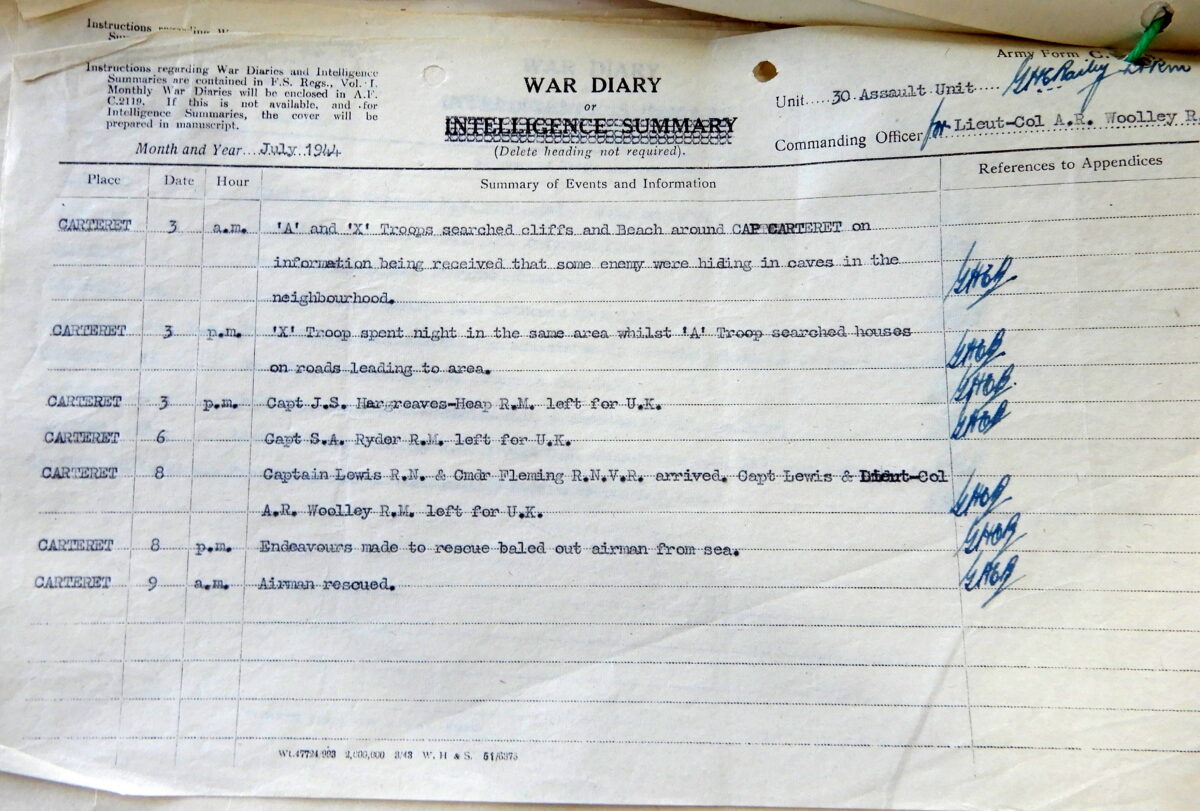 Instructions regarding W
Instructions regarding War Diaries and Intelligence
Summaries are contained in F.S. Regs., Vol. I.
Monthly War Diaries will be enclosed in A.F.
C.2119. If this is not available, and for
Intelligence Summaries, the cover will be
prepared in manuscript.
Month and Year...July.1944
WAR DIARY
or
INTELLIGENCE SUMMARY
(Delete heading not required).
Army Form C.
Unit.....30.Assault.Unit....
Commanding Officer for Lieut-Col A.R. Woolley R.
Place Date Hour Summary of Events and Information References to Appendices
CARTERET 3 a.m. 'A' and 'X' Troops searched cliffs and Beach around CAP CARTERET on
information being received that some enemy were hiding in caves in the
neighbourhood. GHER
CARTERET 3 p.m. 'X' Troop spent night in the same area whilst 'A' Troop searched houses
on roads leading to area. GHER
CARTERET 3 p.m. Capt J.S. Hargreaves-Heap R.M. left for U.K. GHER
CARTERET 6 Capt S.A. Ryder R.M. left for U.K. GHER
CARTERET 8 Captain Lewis R.N. & Cmdr Fleming R.N.V.R. arrived. Capt Lewis & Lieut-Col
A.R. Woolley R.M. left for U.K. GHER
CARTERET 8 p.m. Endeavours made to rescue baled out airman from sea. GHER
CARTERET 9 a.m. Airman rescued. GHER
Wt.47724/993 2,000,000 3/43 W. H & S. 51/6375